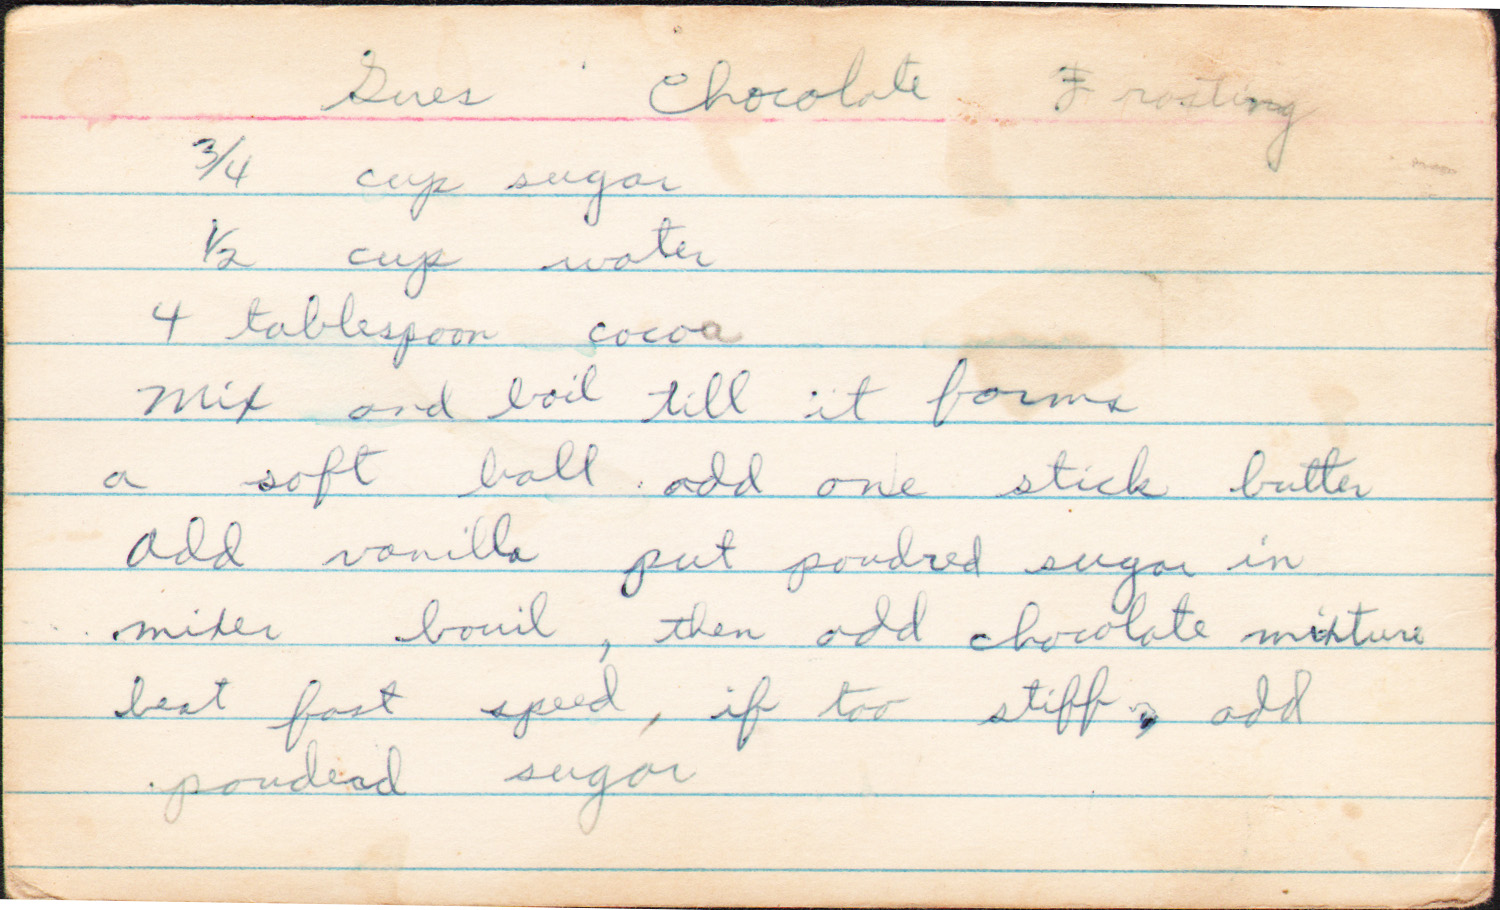 Sues Chocolate Frosting
3/4 cup sugar
1/2 cup water
4 tablespoon cocoa
Mix and boil till it forms
a soft ball add one stick butter
Add vanilla put poudred sugar in
mixer bouil, then add chocolate mixture
beat fast speed, if too stiff, add
poudead sugar